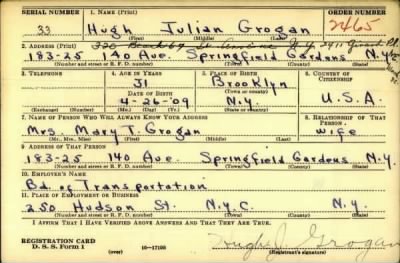 SERIAL NUMBER 1. NAME (Print) ORDER NUMBER
33 Hugh Julian Grogan 2465
(First) (Middle) (Last)
2. ADDRESS (Print)
183-25 140 Ave. Springfield Gardens N.Y.
(Number and street or R. F. D. number) (Town) (County) (State)
3. TELEPHONE 4. AGE IN YEARS 5. PLACE OF BIRTH 6. COUNTRY OF CITIZENSHIP
31 Brooklyn
DATE OF BIRTH (Town or county)
4-26-09 N.Y. U.S.A.
(Exchange) (Number) (Mo.) (Day) (Yr.) (State or country)
7. NAME OF PERSON WHO WILL ALWAYS KNOW YOUR ADDRESS 8. RELATIONSHIP OF THAT PERSON
Mrs. Mary T. Grogan wife
(Mr., Mrs., Miss) (First) (Middle) (Last)
9. ADDRESS OF THAT PERSON
183-25 140 Ave. Springfield Gardens N.Y.
(Number and street or R. F. D. number) (Town) (County) (State)
10. EMPLOYER'S NAME
Bd. of Transportation
11. PLACE OF EMPLOYMENT OR BUSINESS
250 Hudson St. N.Y.C. N.Y.
(Number and street or R. F. D. number) (Town) (County) (State)
I AFFIRM THAT I HAVE VERIFIED ABOVE ANSWERS AND THAT THEY ARE TRUE.
REGISTRATION CARD
D. S. S. Form 1 (over) 16-17105 Hugh J. Grogan
(Registrant's signature)